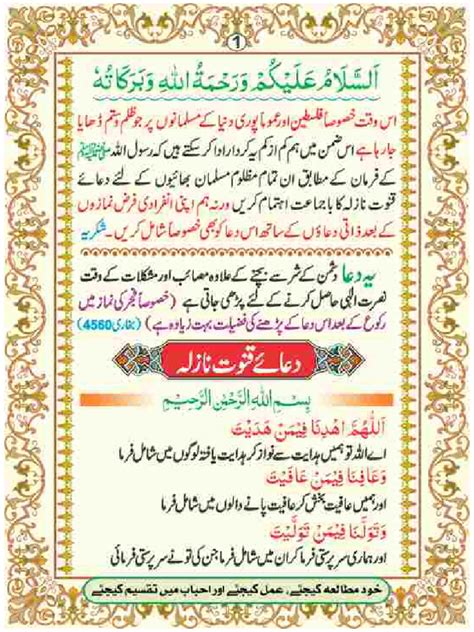 1
اَلسَّلَامُ عَلَیْکُمْ وَرَحْمَةُ اللّٰهِ وَبَرَکَاتُهٗ
اس وقت خصوصاً فلسطین اور عموماً پوری دنیا کے مسلمانوں پر جو ظلم و ستم ڈھایا
جا رہا ہے اس ضمن میں ہم کم از کم یہ کردار ادا کر سکتے ہیں کہ رسول اللہ ﷺ
کے فرمان کے مطابق ان تمام مظلوم مسلمان بھائیوں کے لئے دعائے
قنوت نازلہ کا باجماعت اہتمام کریں ورنہ ہم اپنی انفرادی فرض نمازوں
کے بعد ذاتی دعاؤں کے ساتھ اس دعا کو بھی خصوصاً شامل کریں۔ شکریہ
یہ دعا دشمن کے شر سے بچنے کے علاوہ مصائب اور مشکلات کے وقت
نصرت الٰہی حاصل کرنے کے لئے پڑھی جاتی ہے (خصوصاً فجر کی نماز میں
رکوع کے بعد اس دعا کے پڑھنے کی فضیلت بہت زیادہ ہے) (بخاری 4560)
دعائے قنوت نازلہ
بِسْمِ اللّٰهِ الرَّحْمٰنِ الرَّحِیْمِ
اَللّٰهُمَّ اهْدِنَا فِیْمَنْ هَدَیْتَ
اے اللہ تو ہمیں ہدایت سے نواز کر ہدایت یافتہ لوگوں میں شامل فرما
وَعَافِنَا فِیْمَنْ عَافَیْتَ
اور ہمیں عافیت بخش کر عافیت پانے والوں میں شامل فرما
وَتَوَلَّنَا فِیْمَنْ تَوَلَّیْتَ
اور ہماری سرپرستی فرما کر ان میں شامل فرما جن کی تو نے سرپرستی فرمائی
خود مطالعہ کیجئے، عمل کیجئے اور احباب میں تقسیم کیجئے